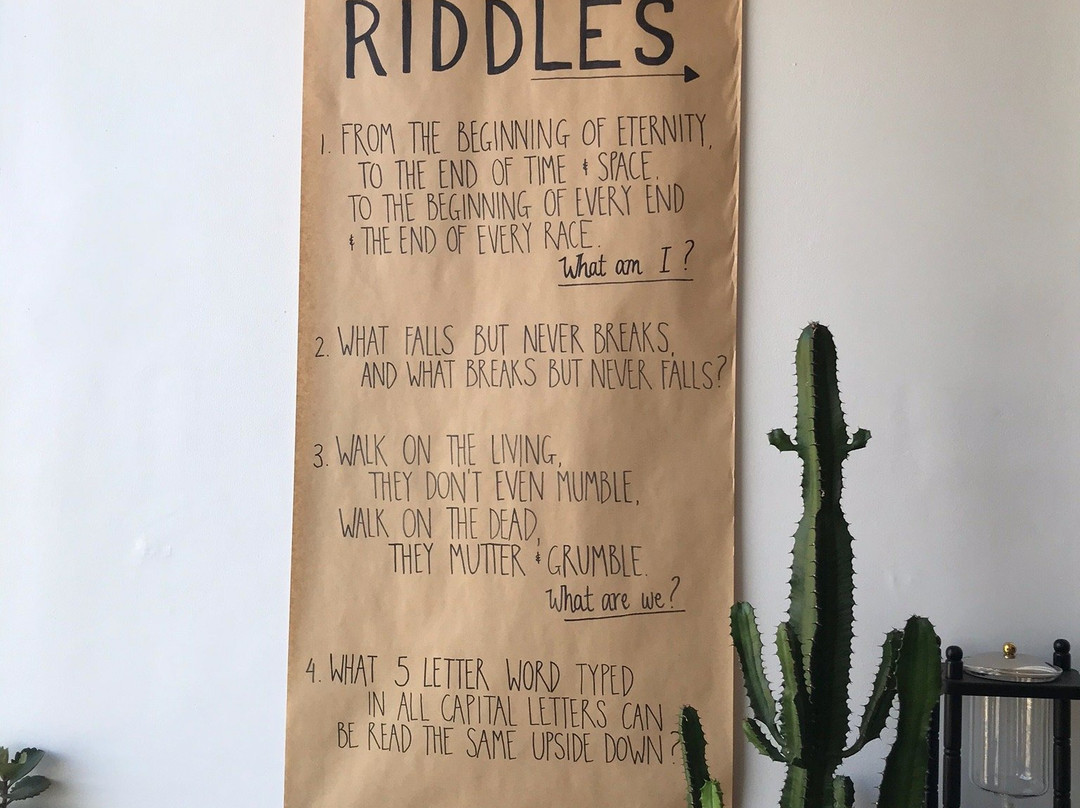 RIDDLES
1. FROM THE BEGINNING OF ETERNITY,
TO THE END OF TIME & SPACE.
TO THE BEGINNING OF EVERY END
& THE END OF EVERY RACE.
What am I?
2. WHAT FALLS BUT NEVER BREAKS,
AND WHAT BREAKS BUT NEVER FALLS?
3. WALK ON THE LIVING,
THEY DON'T EVEN MUMBLE,
WALK ON THE DEAD,
THEY MUTTER & GRUMBLE.
What are we?
4. WHAT 5 LETTER WORD TYPED
IN ALL CAPITAL LETTERS CAN
BE READ THE SAME UPSIDE DOWN?